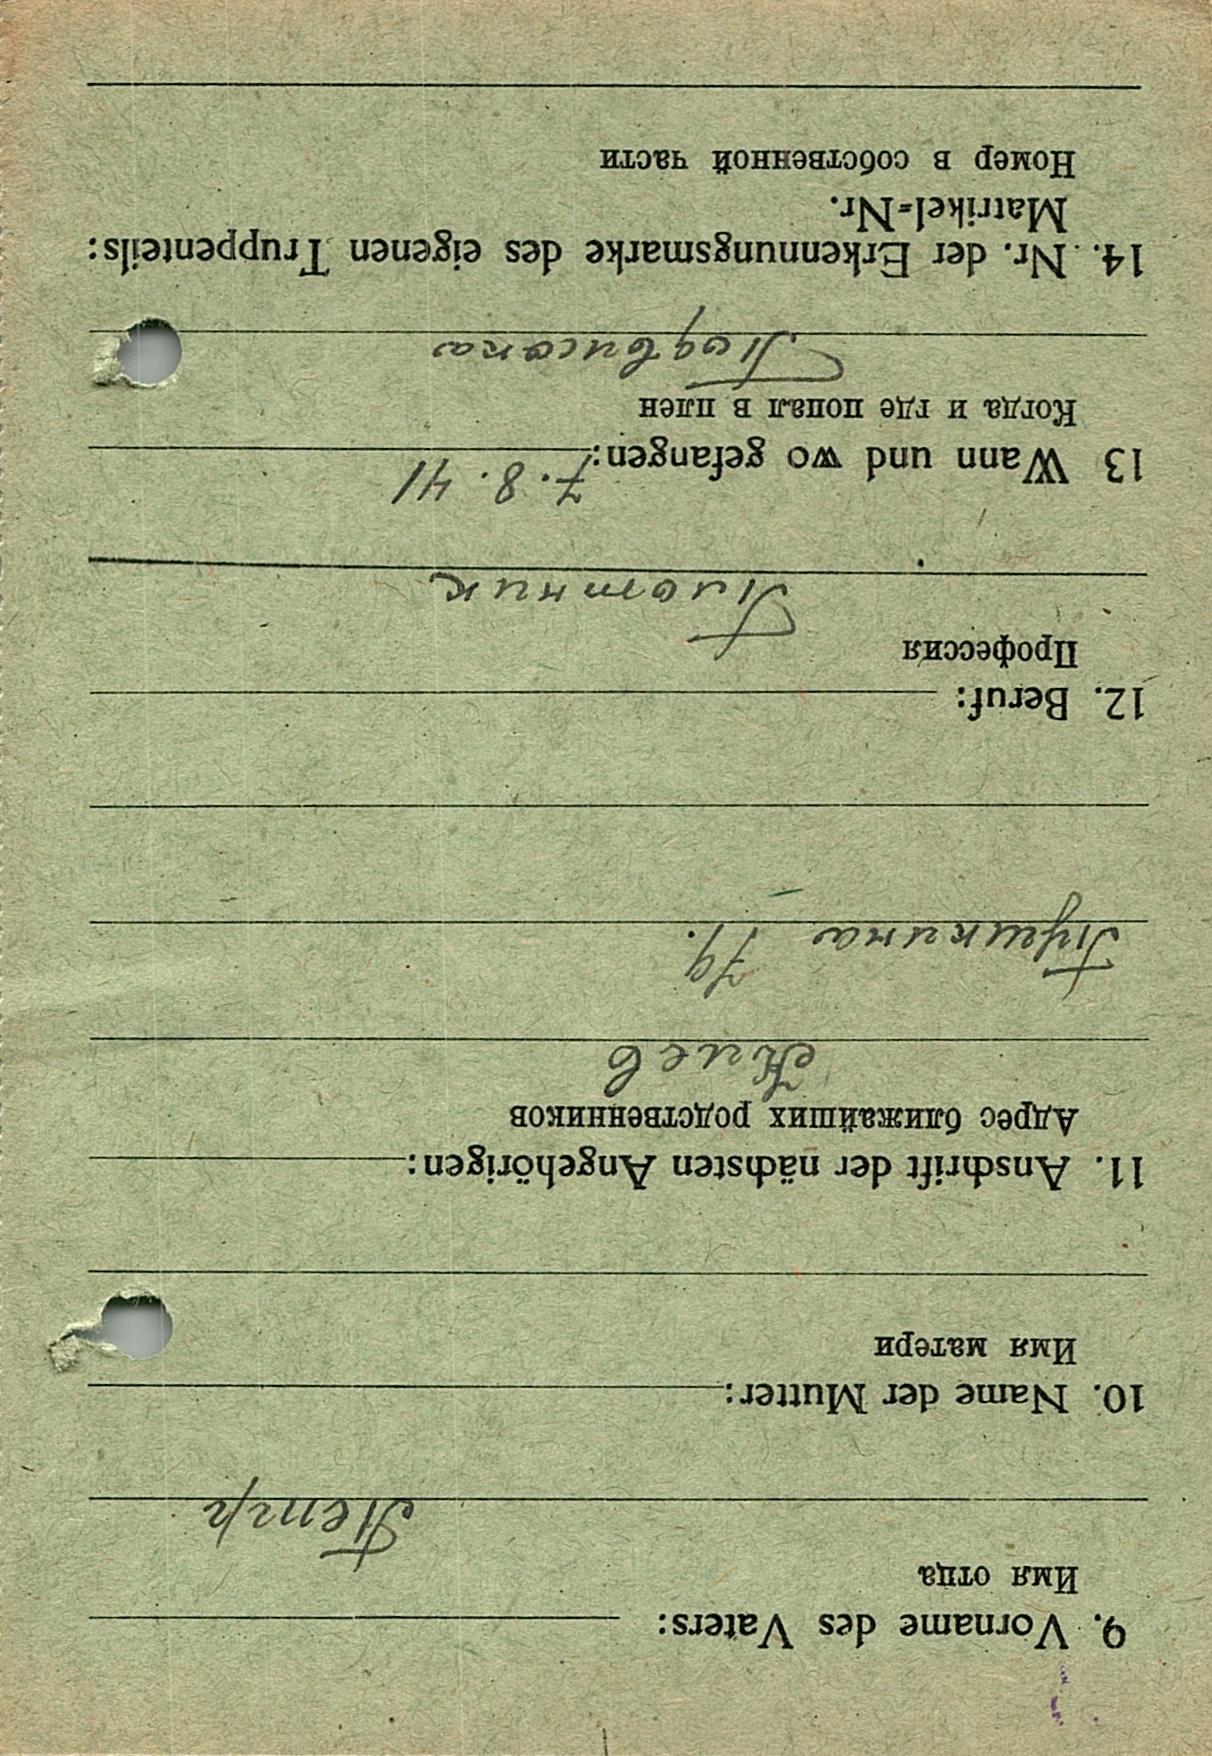 9. Vorname des Vaters:
Имя отца
Петр
10. Name der Mutter:
Имя матери
11. Anschrift der nächsten Angehörigen:
Адрес ближайших родственников
Киев
Пушкина
12. Beruf:
Профессия
Плотник
13 Wann und wo gefangen: 7.8.41
Когда и где попал в плен
Подвисока
14. Nr. der Erkennungsmarke des eigenen Truppenteils:
Matrikel-Nr.
Номер в собственной части